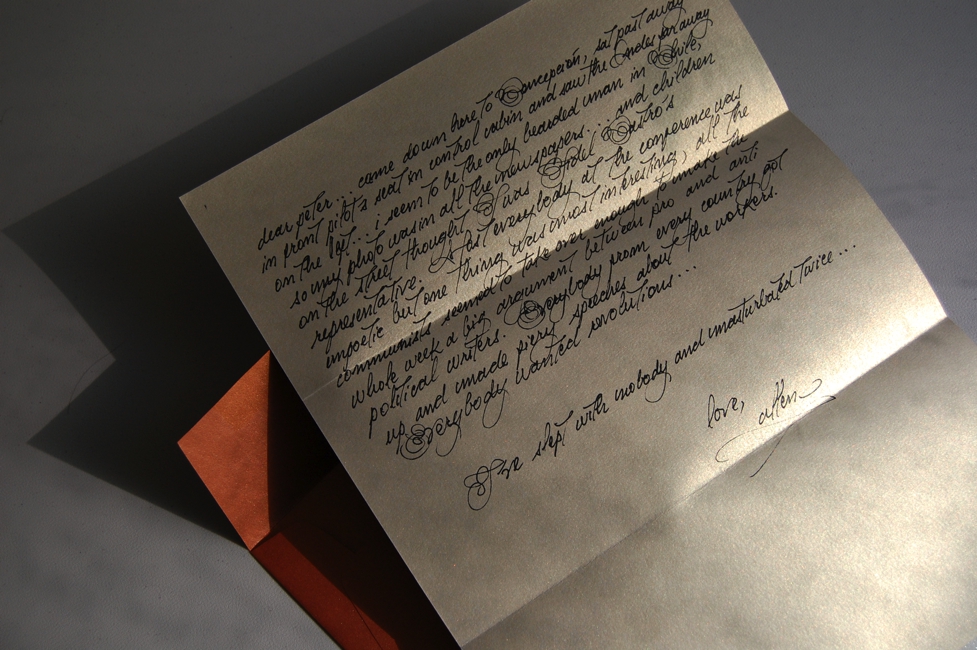 dear peter... came down here to Concepción, sat past away
in front pilot's seat in control cabin and saw the Andes far away
on the left... i seem to be the only bearded man in Chile,
so my photo was in all the newspapers.... and children
on the street thought I was Fidel Castro's
representative. at everybody at the conference was
unpoetic but one thing was most interesting, all the
communists seemed to take over enough to make the
whole week a big argument between pro and anti
political writers. Everybody from every country got
up and made fiery speeches about the workers.
Everybody wanted revolutions...
I've slept with nobody and masturbated twice...
love,
allen